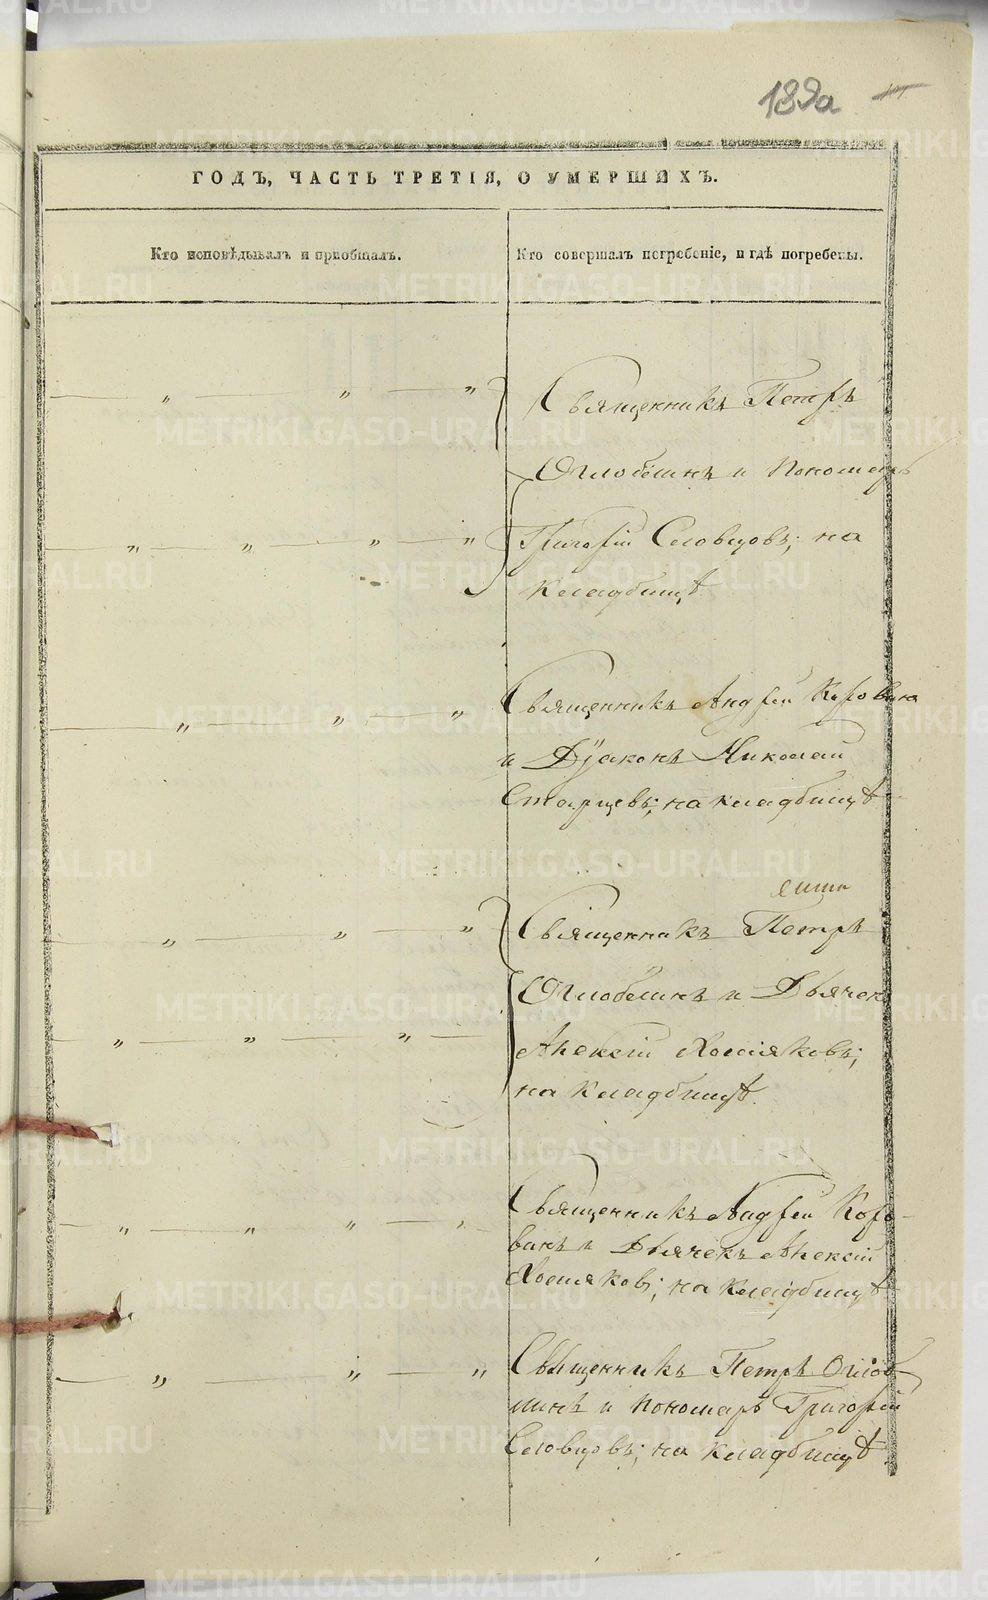 189а
ГОДЪ, ЧАСТЬ ТРЕТІЯ, О УМЕРШИХЪ.
Кто исповѣдывалъ и пріобщалъ.
Кто совершалъ погребеніе, и гдѣ погребены.
Священникъ Петръ
Оглоблинъ и Пономарь
Григорій Словцовъ; на
кладбищѣ
Священникъ Андрей Коровинъ
и Діаконъ Николай
Старцевъ; на кладбищѣ
Священникъ Петръ
Оглоблинъ и Дьячекъ
Алексій Хомяковъ;
на кладбищѣ.
Священникъ Андрей Коро-
винъ и Дьячекъ Алексій
Хомяковъ; на кладбищѣ
Священникъ Петръ Оглоб-
линъ и Пономарь Григорій
Словцовъ; на кладбищѣ
METRIKI.GASO-URAL.RU